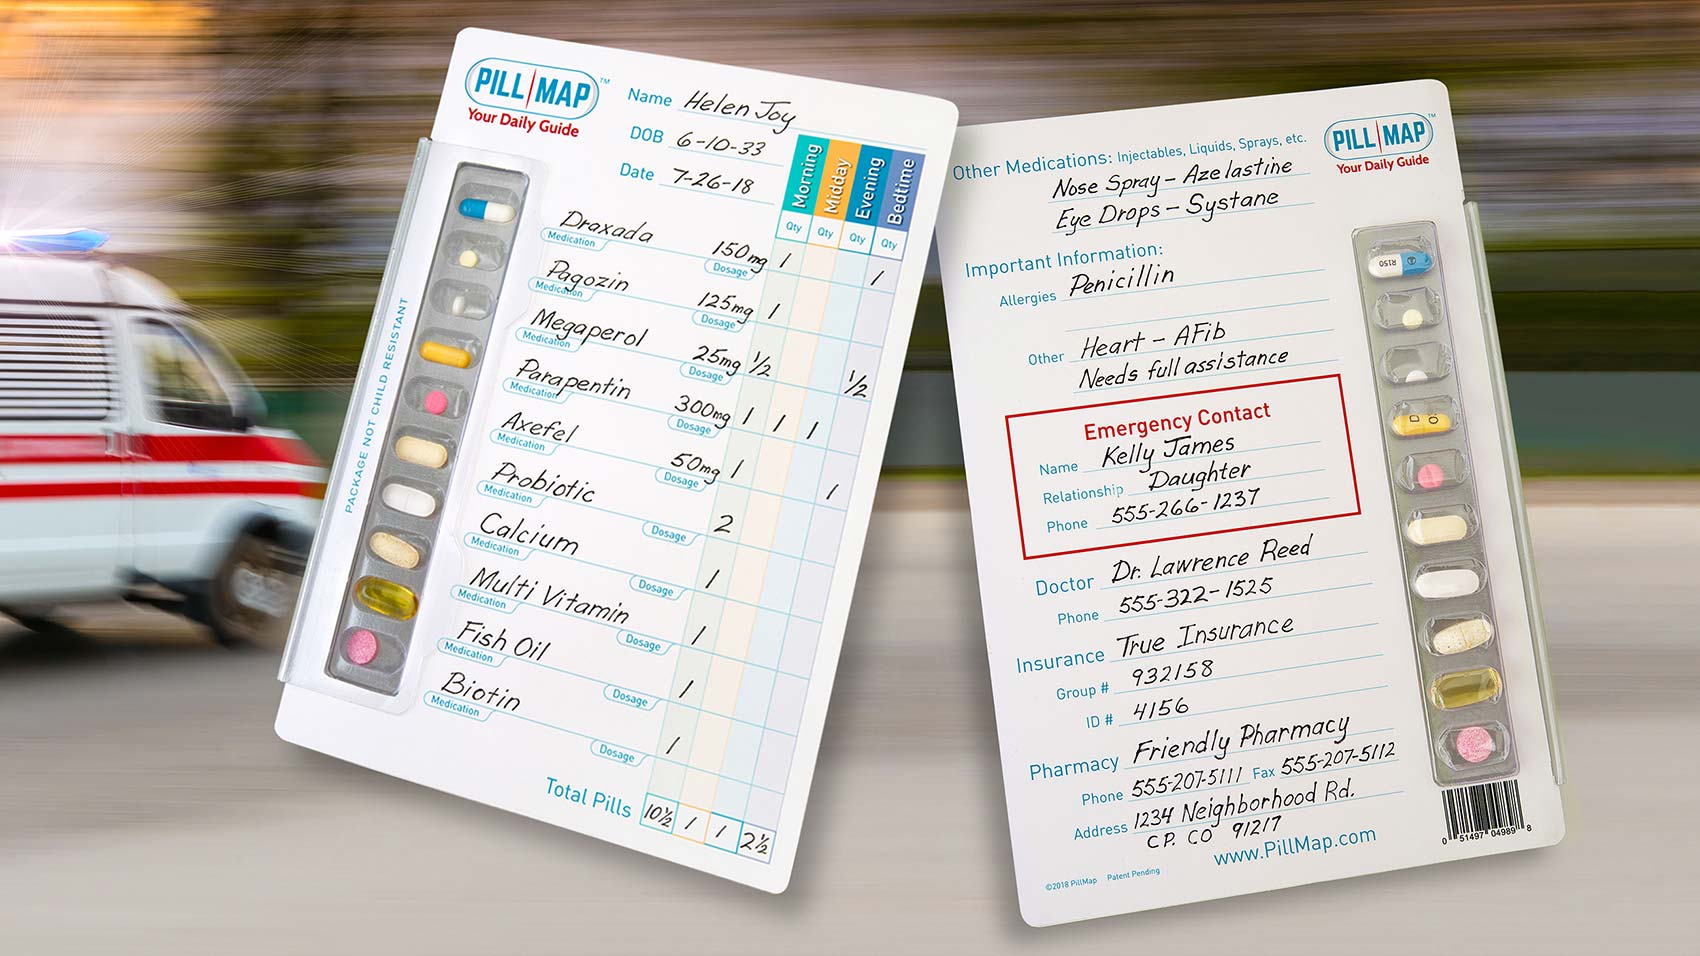 PILL MAP™
Your Daily Guide
Name Helen Joy
DOB 6-10-33
Date 7-26-18
Morning Midday Evening Bedtime
Qty Qty Qty Qty
Draxada 150mg 1 1
Medication Dosage
Pagozin 125mg 1
Medication Dosage
Megaperol 25mg 1/2 1/2
Medication Dosage
Parapentin 300mg 1 1 1
Medication Dosage
Axefel 50mg 1 1
Medication Dosage
Probiotic 2
Medication Dosage
Calcium 1
Medication Dosage
Multi Vitamin 1
Medication Dosage
Fish Oil 1
Medication Dosage
Biotin 1
Medication Dosage
Total Pills 10½ 1 1 2½
PACKAGE NOT CHILD RESISTANT
Other Medications: Injectables, Liquids, Sprays, etc.
Nose Spray – Azelastine
Eye Drops – Systane
PILL MAP™
Your Daily Guide
Important Information:
Allergies Penicillin
Other Heart – AFib
Needs full assistance
Emergency Contact
Name Kelly James
Relationship Daughter
Phone 555-266-1237
Doctor Dr. Lawrence Reed
Phone 555-322-1525
Insurance True Insurance
Group # 932158
ID # 4156
Pharmacy Friendly Pharmacy
Phone 555-207-5111 Fax 555-207-5112
Address 1234 Neighborhood Rd.
C.P. CO 91217
www.PillMap.com
©2018 PillMap Patent Pending
R150
0 51497 04989 8